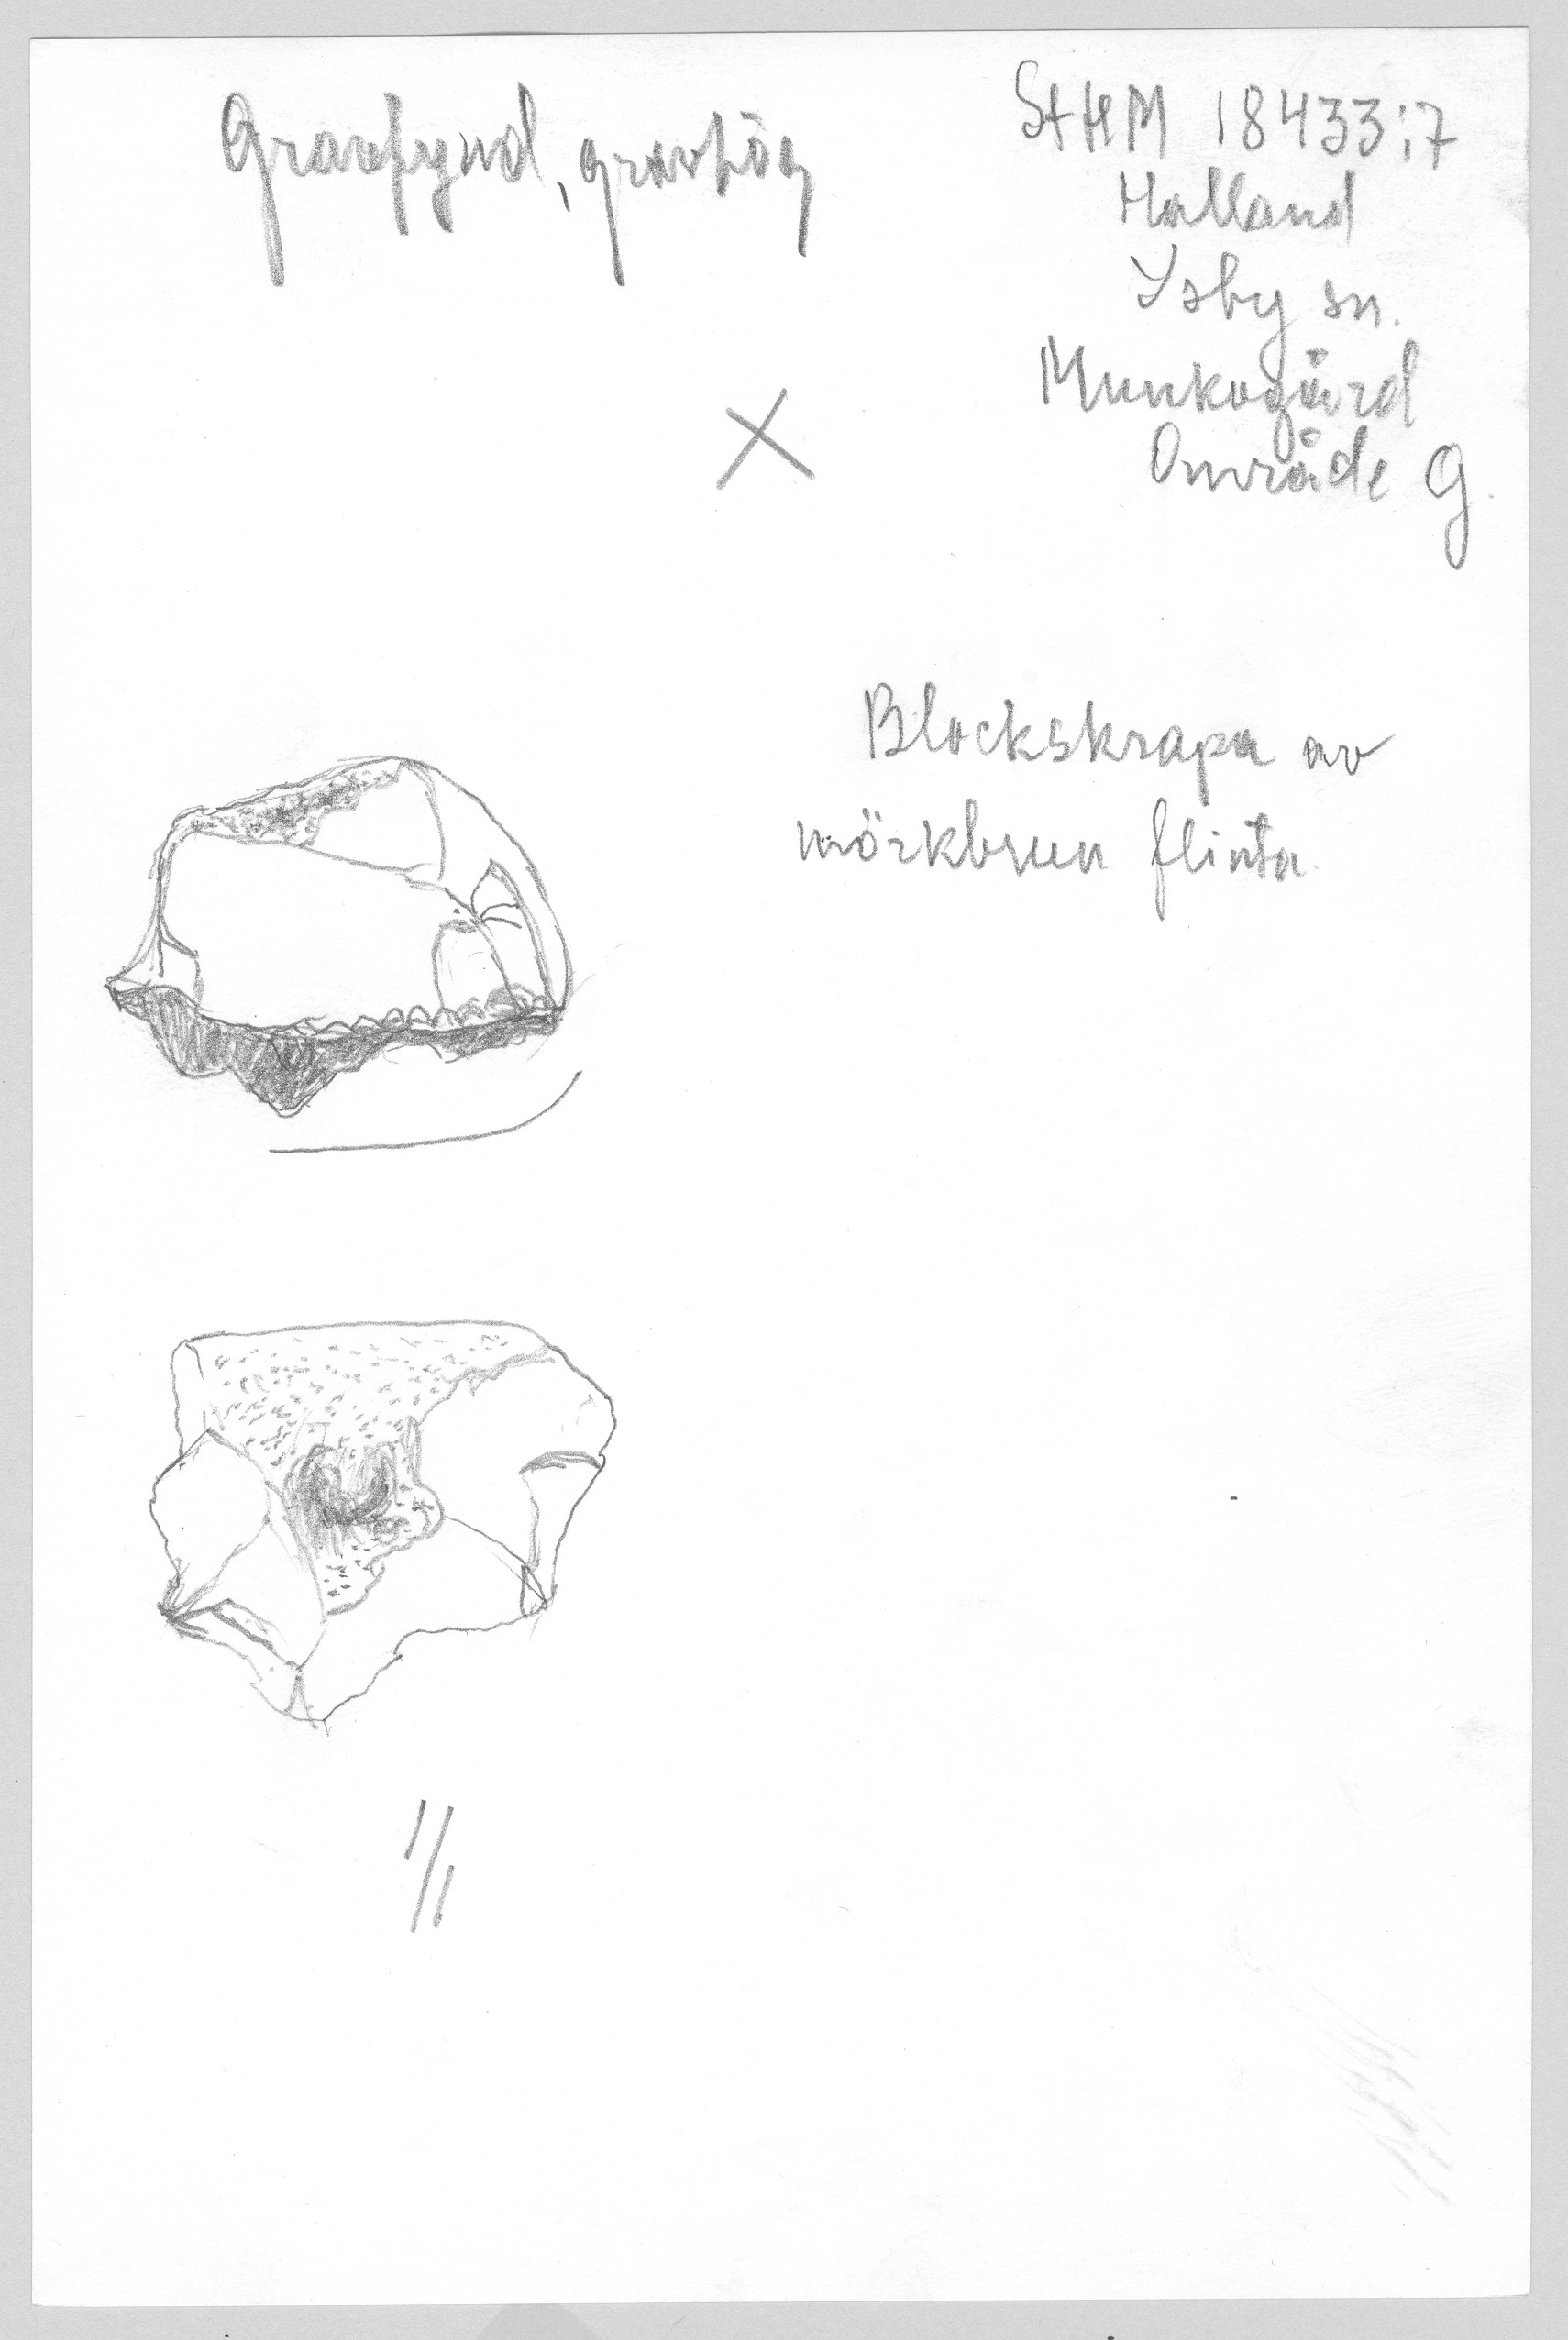 Gravfynd, gravhög
StHM 18433:7
Halland
Ysby sn.
Munkagård
Område G.
X
Blockskrapa av
mörkbrun flinta.
1/1